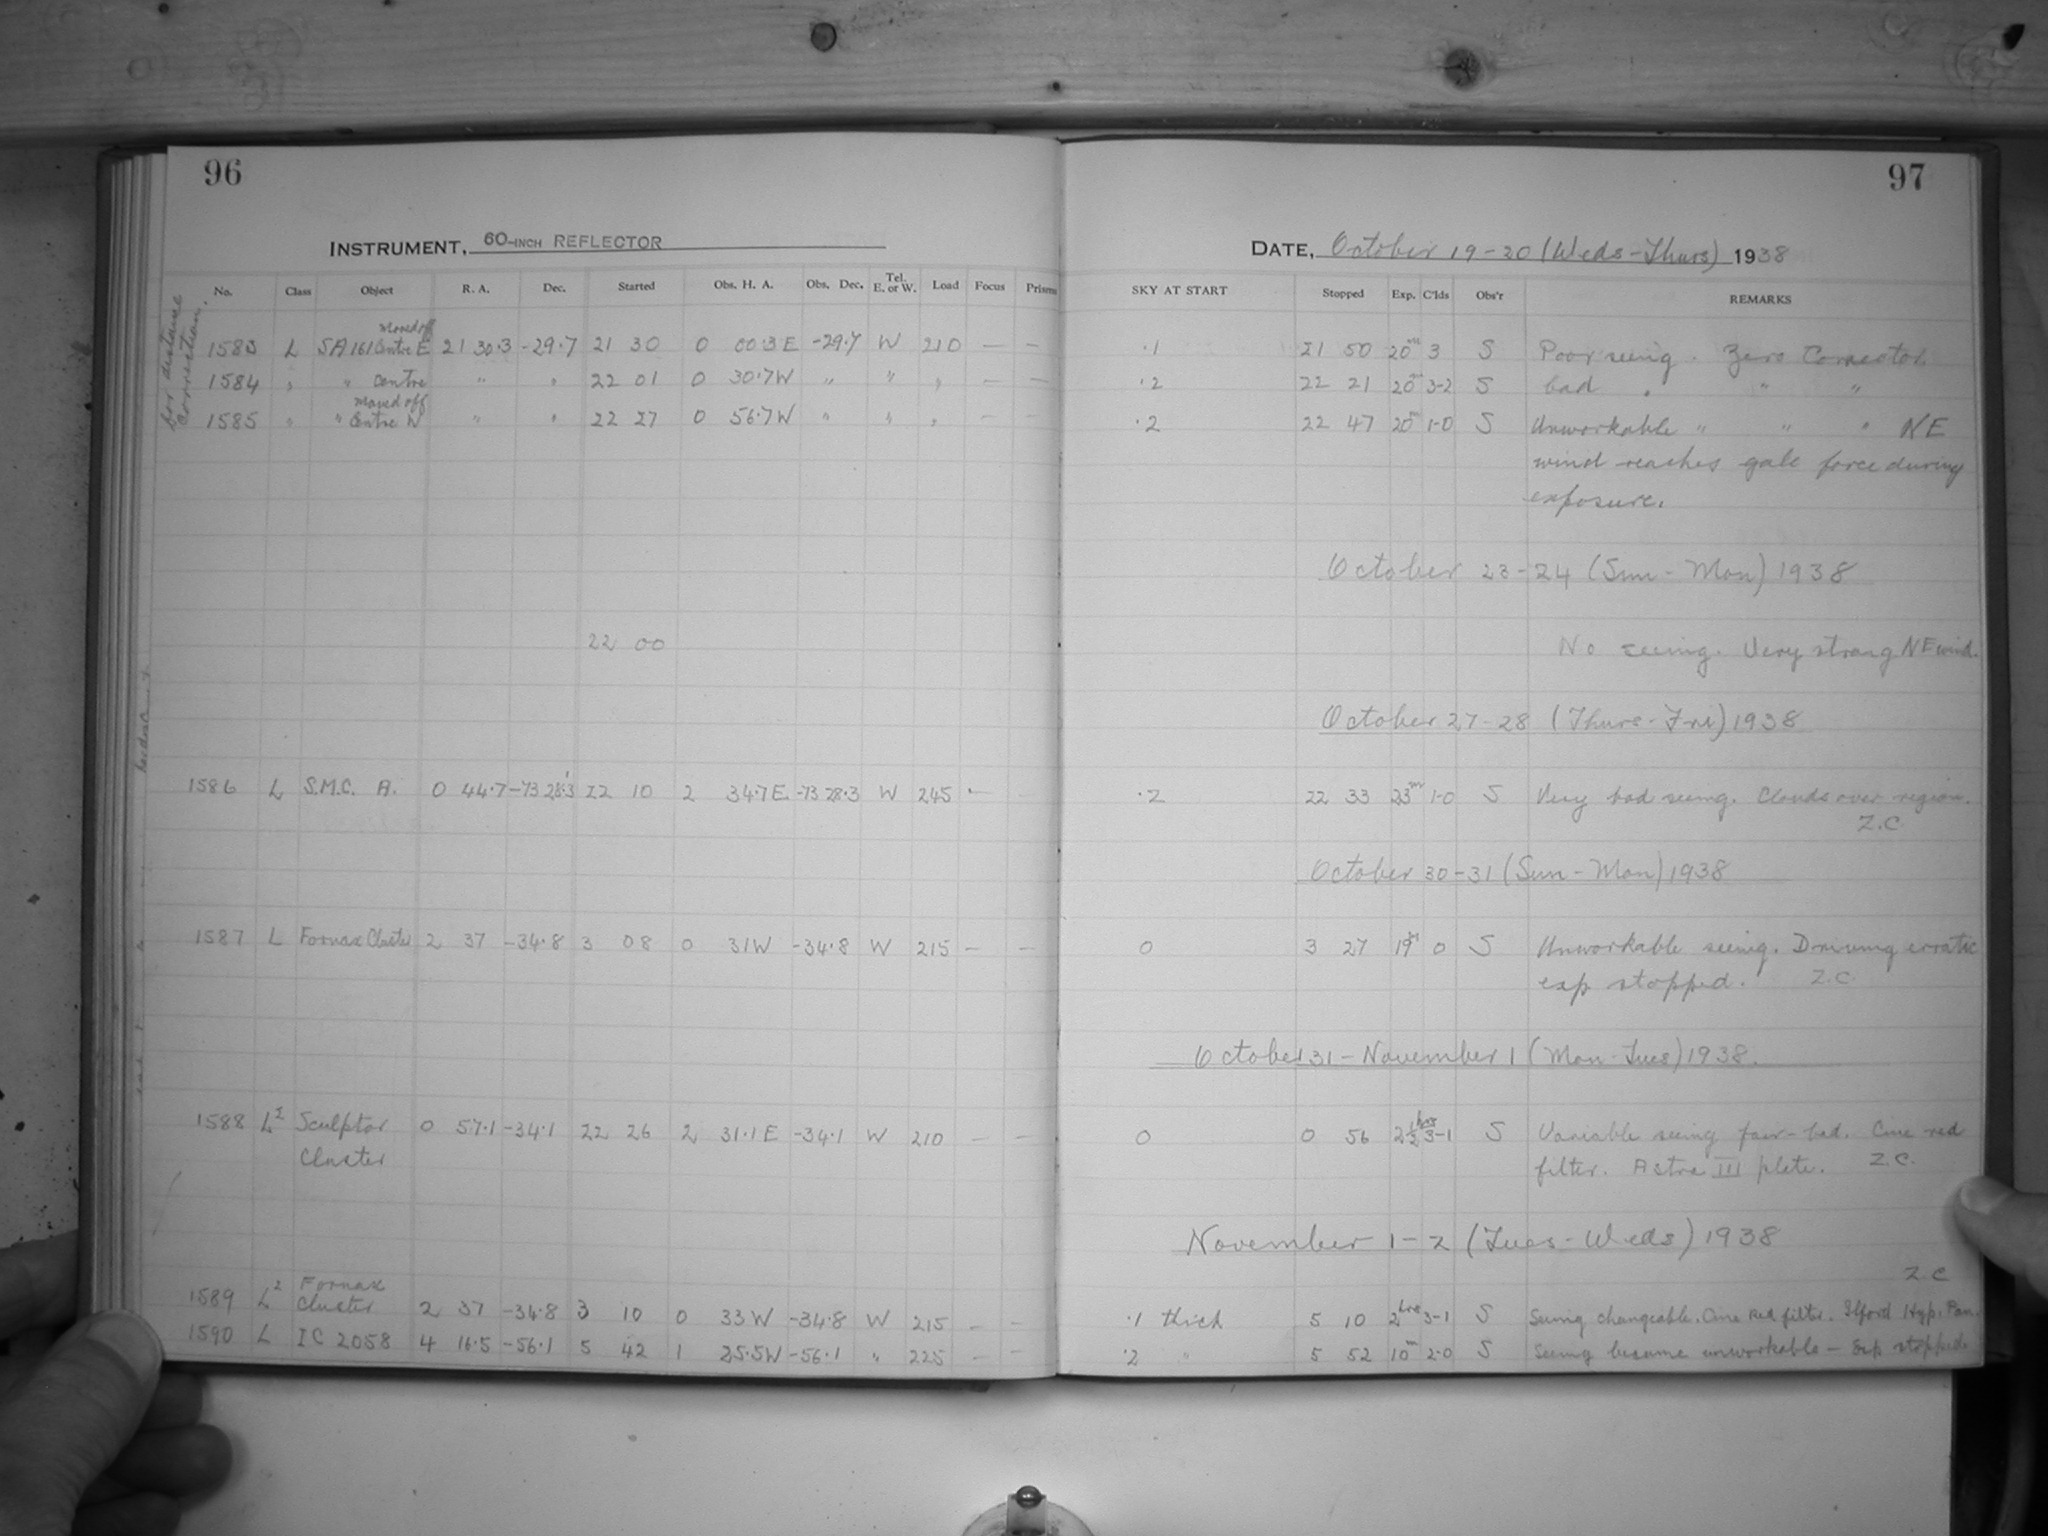 96
INSTRUMENT, 60-INCH REFLECTOR
No. Class Object R. A. Dec. Started Obs. H. A. Obs. Dec. Tel. E. or W. Load Focus Prism
for distance correction.
Moved off
1583 L SA 161 Centre E 21 30.3 -29.7 21 30 0 00.3 E -29.7 W 210 — —
1584 " " Centre " " 22 01 0 30.7 W " " " — —
Moved off
1585 " " Centre W " " 22 27 0 56.7 W " " " — —
22 00
1586 L S.M.C. A. 0 44.7 -73 28.3 22 10 2 34.7 E -73 28.3 W 245 — —
1587 L Fornax Cluster 2 37 -34.8 3 08 0 31 W -34.8 W 215 — —
1588 Sculptor 0 57.1 -34.1 22 26 2 31.1 E -34.1 W 210 — —
Cluster
Fornax
1589 L² Cluster 2 37 -34.8 3 10 0 33 W -34.8 W 215 — —
1590 L IC 2058 4 16.5 -56.1 5 42 1 25.5 W -56.1 " 225 — —
97
DATE, October 19-20 (Weds-Thurs) 1938
SKY AT START Stopped Exp. C'lds Obs'r REMARKS
.1 21 50 20m 3 S Poor seeing. Zero Corrector.
.2 22 21 20m 3-2 S bad " " "
.2 22 47 20m 1-0 S Unworkable " " " NE
wind reaches gale force during
exposure.
October 23-24 (Sun-Mon) 1938
No seeing. Very strong NE wind.
October 27-28 (Thurs-Fri) 1938
.2 22 33 23m 1-0 S Very bad seeing. Clouds over region.
Z.C.
October 30-31 (Sun-Mon) 1938
0 3 27 19m 0 S Unworkable seeing. Driving erratic
exp stopped. Z.C.
October 31 - November 1 (Mon-Tues) 1938.
0 0 56 2½hrs 3-1 S Variable seeing fair-bad. Cine red
filter. Astra III plate. Z.C.
November 1-2 (Tues-Weds) 1938
Z.C
.1 thick 5 10 2hrs 3-1 S Seeing changeable. Cine Red filter. Ilford Hyp. Pan.
.2 " 5 52 10m 2-0 S Seeing became unworkable - Exp stopped.